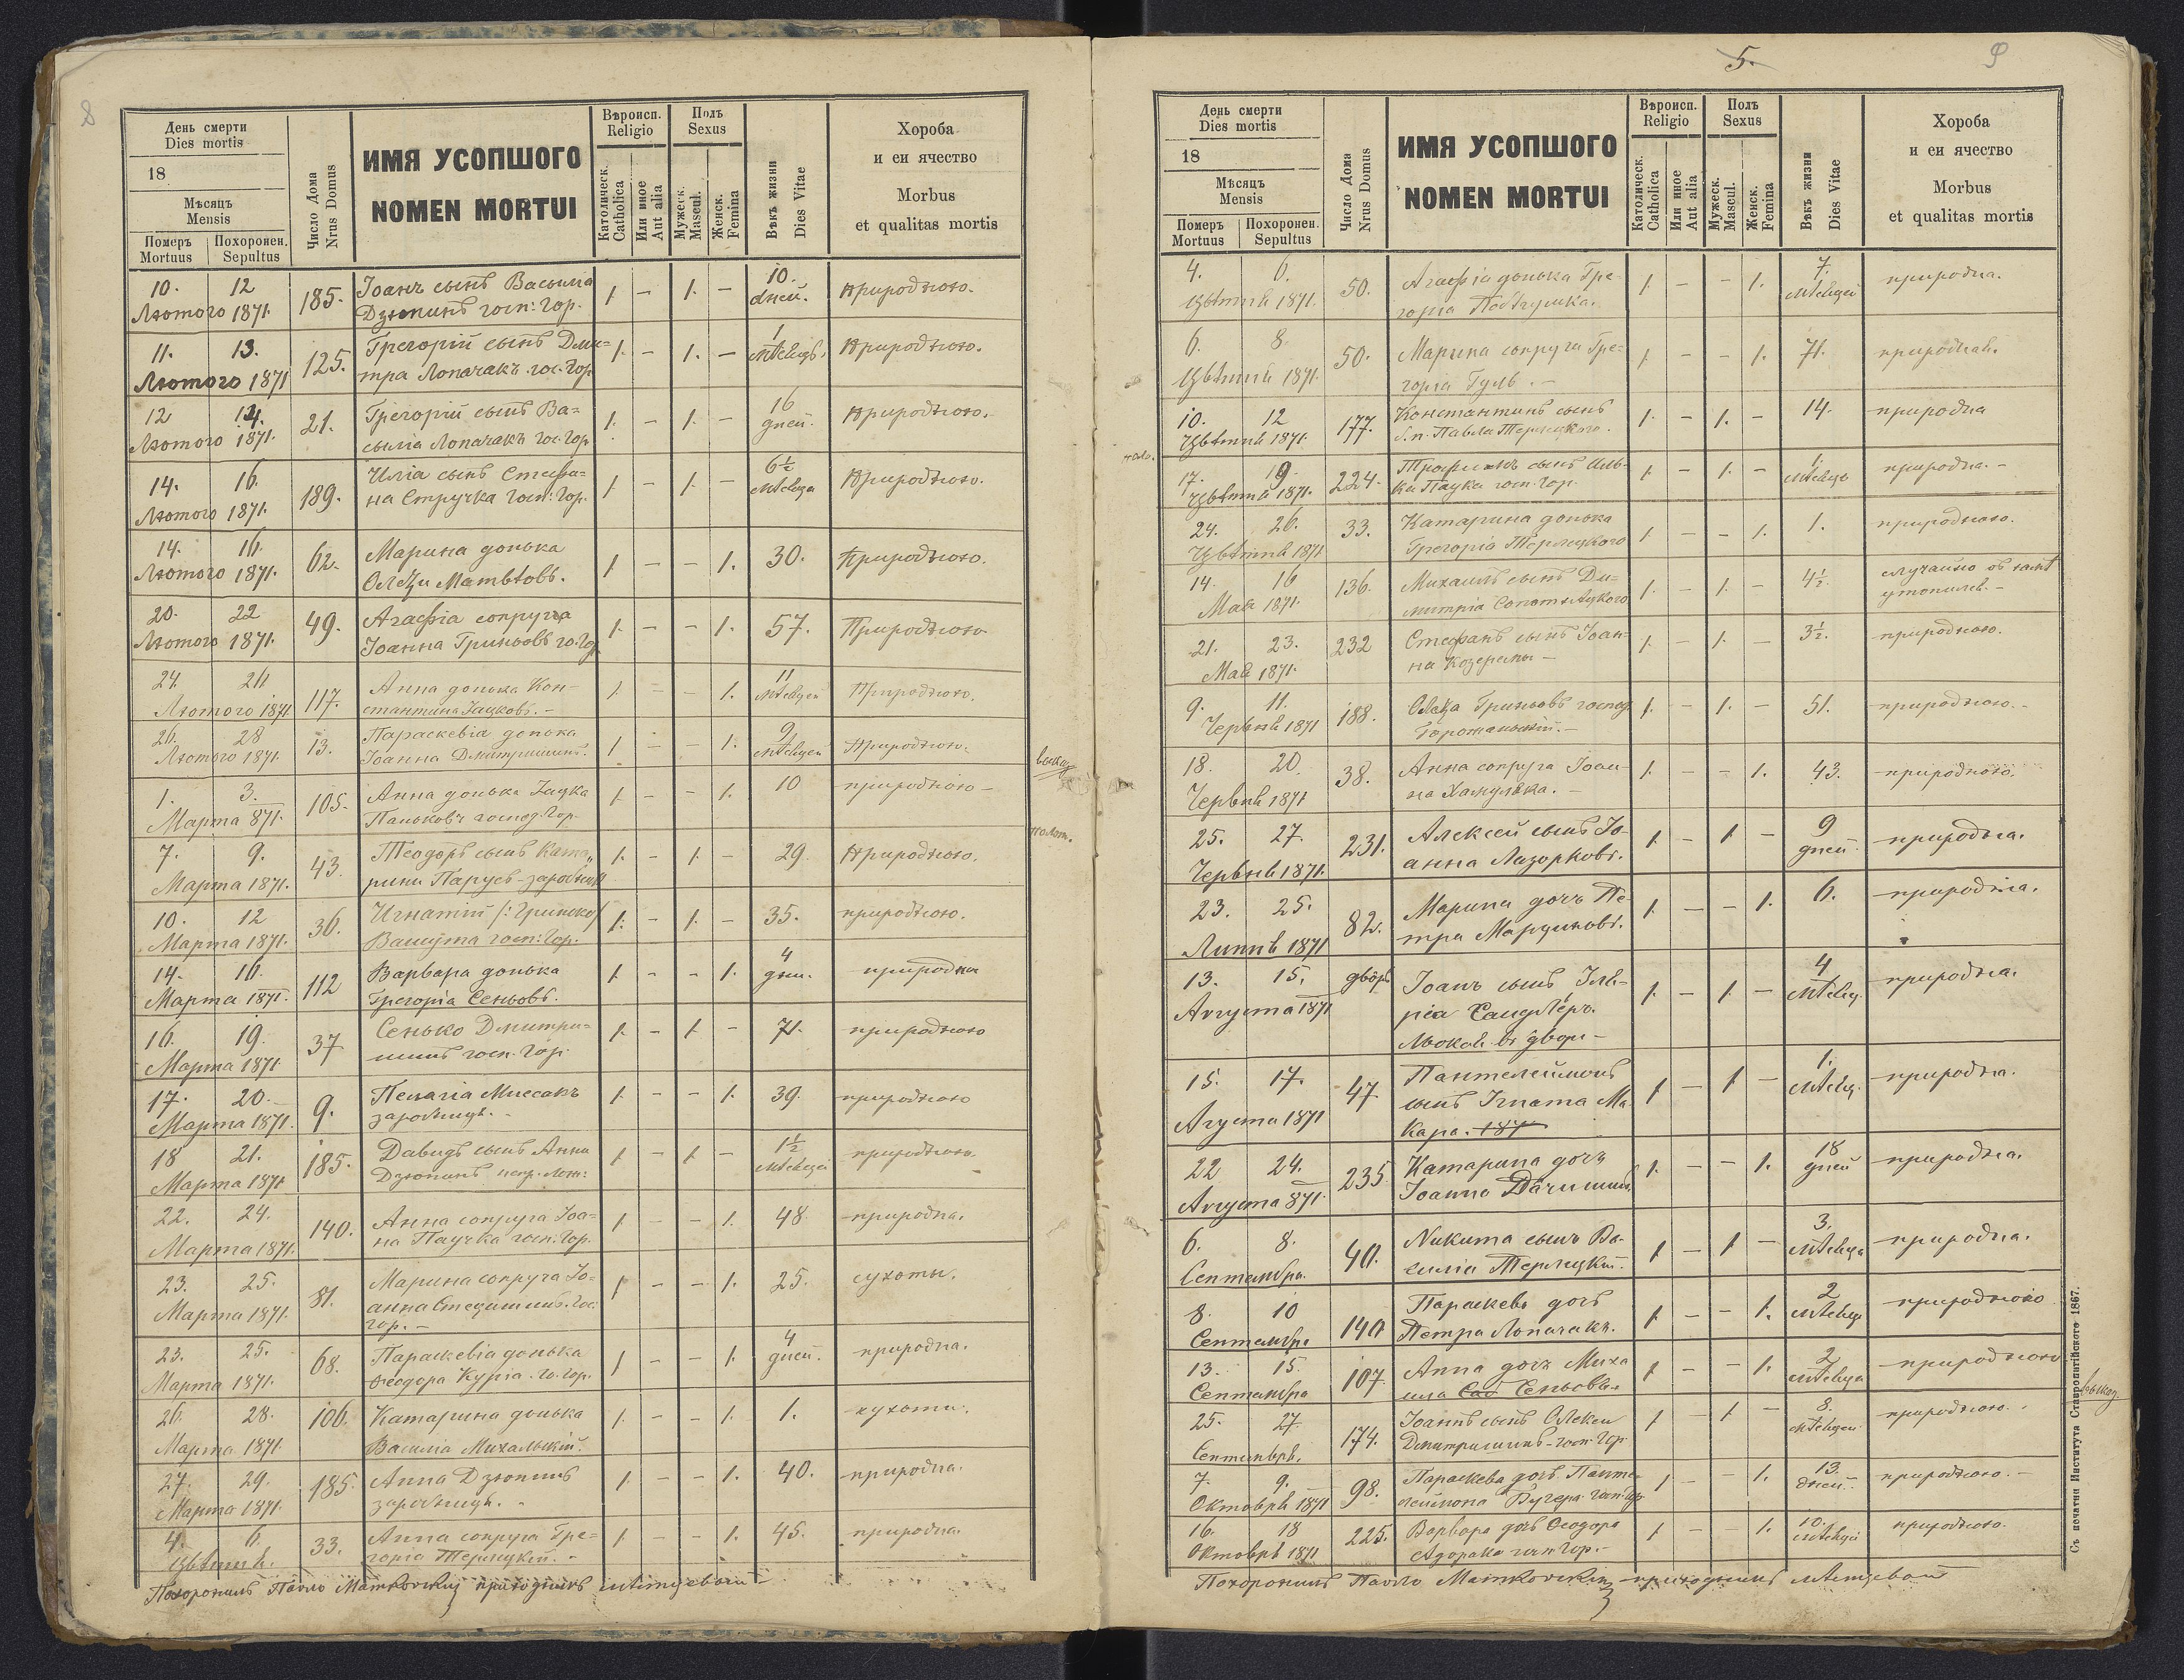 8
День смерти
Dies mortis
18
Мѣсяцъ
Mensis
Померъ
Mortuus
Похоронен.
Sepultus
Число Дома
Nrus Domus
ИМЯ УСОПШОГО
NOMEN MORTUI
Вѣроисп.
Religio
Католическ.
Catholica
Или иное
Aut alia
Полъ
Sexus
Мужеск.
Mascul.
Женск.
Femina
Вѣкъ жизни
Dies Vitae
Хороба
и еи ячество
Morbus
et qualitas mortis
10. 12 185. Іоанъ сынъ Василіа 1. – 1. – 10. природною.
Лютого 1871. Дзюпинъ госп: Гор. дней.
11. 13. 125. Григорій сынъ Дми= 1. – 1. – 1 природною.
Лютого 1871 тра Лопачакъ. гос. Гор. мѣсяцъ.
12 14. 21. Григорій сынъ Ва= 1. – 1. – 16 природною.
Лютого 1871. силіа Лопачакъ гос. Гор. дней.
14. 16. 189. Иліа сынъ Стефа= 1 – 1 – 6½ природною.
Лютого 1871. на Стручка госп: Гор. мѣсяца
14. 16. 62. Марина донька 1 – – 1. 30. природною.
Лютого 1871. Олекзи Матвѣовъ.
20. 22 49. Агафіа сопруга 1. – – 1. 57. Природною
Лютого 1871. Іоанна Гриньовъ го. Гор
24. 26 117. Анна донька Кон- 1. – – 1. 11 Природною.
Лютого 1871. стантина Іацковъ. – мѣсяцей
26. 28 13. Параскевіа донька 1 – – 1. 9 Природною.
Лютого 1871. Іоанна Дмитришинъ. мѣсяцей
1. 3. 105. Анна донька Іацка 1. – – 1. 10 природною –
Марта 871. Паньковъ господ. Гор.
7. 9. 43. Теодоръ сынъ Ката„ 1. – 1. – 29. природною.
Марта 1871. рини Паруєв - заробник
10. 12 36. Игнатій /: Гринько/ 1. – 1. – 35. природною.
Марта 1871. госп: Гор.
14. 16. 112 Варвара донька 1. – – 1. 4 природна
Марта 1871. Григоріа Сеньовъ. дни.
16. 19. 37 Сенько Дмитри= 1. – 1. – 71. природною
Марта 1871 шинъ госп. Гор.
17. 20. 9. Пелагіа Миссакъ 1. – – 1. 39. природною
Марта 1871. заробниця. –
18 21. 185. Давидъ сынъ Анни 1. – 1 – 1½ природною.
Марта 1871 Дзюпинъ мѣсяца
22. 24. 140. Анна сопруга Іоа= 1. – – 1. 48. природна.
Марта 1871. на Паучка госп. Гор.
23. 25. 81. Марина сопруга Іо= 1 – – 1. 25. сухоты.
Марта 1871. анна гос.
гор. –
23. 25. 68. Параскевіа донька 1 – – 1. 4 природна.
Марта 1871. Ѳеодора Курпа. го. гор. дней.
26. 28. 106. Катарина донька 1. – – 1. 1. сухоти.
Марта 1871. Василіа Михальскій.
27. 29. 185. Анна Дзюпинъ 1. – – 1. 40. природна.
Марта 1871. заробниця. –
4. 6. 33. Анна сопруга Гре= 1. – – 1. 45. природна.
Цвѣтня. горіа Терлецкій. –
Похоронилъ Павло Матковскій приходникъ мѣстцевый
5.
9
День смерти
Dies mortis
18
Мѣсяцъ
Mensis
Померъ
Mortuus
Похоронен.
Sepultus
Число Дома
Nrus Domus
ИМЯ УСОПШОГО
NOMEN MORTUI
Вѣроисп.
Religio
Католическ.
Catholica
Или иное
Aut alia
Полъ
Sexus
Мужеск.
Mascul.
Женск.
Femina
Вѣкъ жизни
Dies Vitae
Хороба
и еи ячество
Morbus
et qualitas mortis
4. 6. 50. Агафіа донька Гре- 1. – – 1. 7. природна.
Цвѣтня 1871. горіа мѣсяцей
6. 8. 50. Марина сопруга Гре= 1. – – 1. 71. природная.
Цвѣтня 1871. горіа Гуль. –
10. 12 177. Константинъ сынъ 1. – 1. – 14. природна
Цвѣтня 1871. б. п. Павла Терлецкого.
17. 19 224. Трофимъ сынъ Иль- 1. – 1. – 1. природна. –
Цвѣтня 1871. ка Паука госп. Гор. мѣсяцъ
24. 26. 33. Катарина донька 1 – – 1. 1. природною.
Цвѣтня 1871 Григоріа Терлецкого
14. 16 136. Михаилъ сынъ Ди= 1. – 1. – 4½. случайно
Мая 1871. митріа утопился. –
21. 23. 232 Стефанъ сынъ Іоан- 1. – 1. – 3½. природною.
Мая 1871. на –
9. 11. 188. Олекса Гриньовъ господ. 1. – 1. – 51. природною. –
Червня 1871 Горожаньскій. –
18. 20. 38. Анна сопруга Іоан- 1. – – 1. 43. природною.
Червня 1871 на Хамуляка. –
25. 27. 231. Алексей сынъ Іо- 1. – 1 – 9 природна.
Червня 1871. анна Лазорковъ. дней.
23. 25. 82. Марина дочь Пе- 1. – – 1. 6. природна.
Липня 1871 тра Марциновъ.
13. 15. дворъ Іоанъ сынъ 1. – 1. – 4 природна.
Августа 1871 мѣсяц.
въ дворѣ –
15. 17. 47 Пантелеймонъ 1 – 1 – 1. природна.
Агуста 1871 сынъ Ігната Ма мѣсяц.
кара. 187
22 24. 235 Катарина дочь 1. – – 1. 18 природна.
Августа 871. Іоанна дней
6. 8. 40. Никита сынъ Ва- 1 – 1 – 3. природна.
Септемвра. силіа Терлецкій. мѣсяца
8. 10 140 Параскева дочь 1. – – 1. 2 природною
Септемвра Петра Лопачакъ. мѣсяця
13. 15. 107. Анна дочь Миха 1 – – 1. 2 природною
Септемвра ила Сеньовъ. мѣсяца
25. 27. 174. Іоаннъ сынъ Олексы 1 – 1 – 8. природною.
Септемврь. Дмитришинъ - госп: Гор. мѣсяцей
7. 9. 98. Параскева дочь Панте- 1 – – 1. 13. природною. –
Октоврь 1871 леймона госп: Гор. дней.
16. 18 225. Варвара дочь Ѳеодора 1 – – 1. 10. природною.
Октоврь 1871 госп. Гор. – мѣсяцей
Похоронилъ Павло Матковскій приходникъ мѣстцевый
Съ печатни Института Ставропигійского 1867.